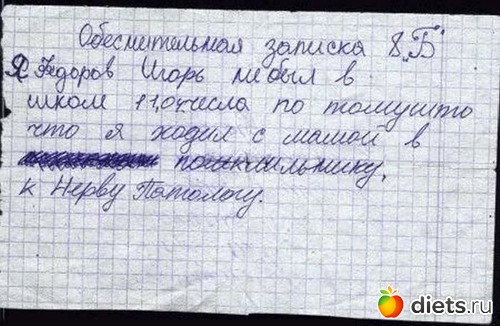 Обеснительная записка 8 „Б"
Я Федоров Игорь небыл в
школе 11,04числа по томушто
что я ходил с мамой в
к Нерву Патологу.
diets.ru